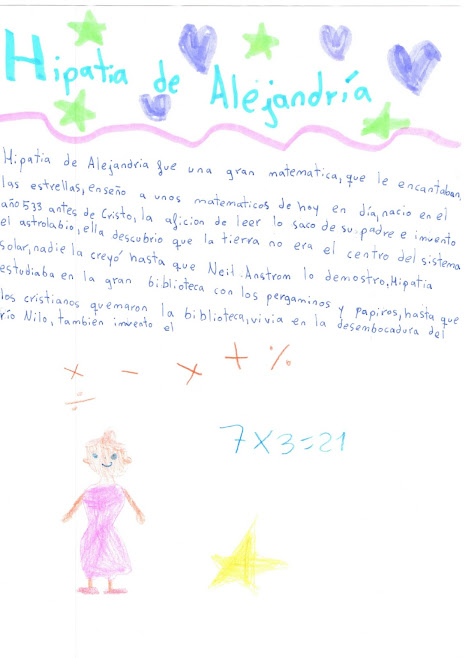 Hipatia de Alejandría
Hipatia de Alejandria fue una gran matematica, que le encantaban
las estrellas, enseño a unos matematicos de hoy en día, nacio en el
año 533 antes de Cristo, la aficion de leer lo saco de su padre e invento
el astrolabio, ella descubrio que la tierra no era el centro del sistema
solar, nadie la creyó hasta que Neil Anstrom lo demostro, Hipatia
estudiaba en la gran biblioteca con los pergaminos y papiros, hasta que
los cristianos quemaron la biblioteca, vivia en la desembocadura del
río Nilo, tambien invento el
× - × + %
÷
7×3=21